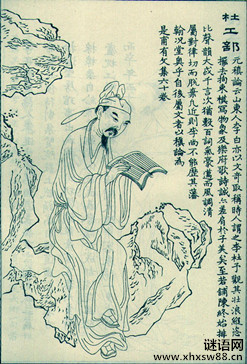 杜工部
元稹論云山東人李白亦以文奇取稱時謂之李杜予觀其壯浪縱恣
擺去拘束模寫物象及樂府歌詩誠亦差肩於子美矣至若鋪陳終始排
比聲韻大或千言次猶數百詞氣豪邁而風調清深
屬對律切而脫棄凡近則李尚不能歷其藩
翰況堂奧乎自後屬文者以稹論為
是甫有文集六十卷
谜语网
www.xhxsw88.cn